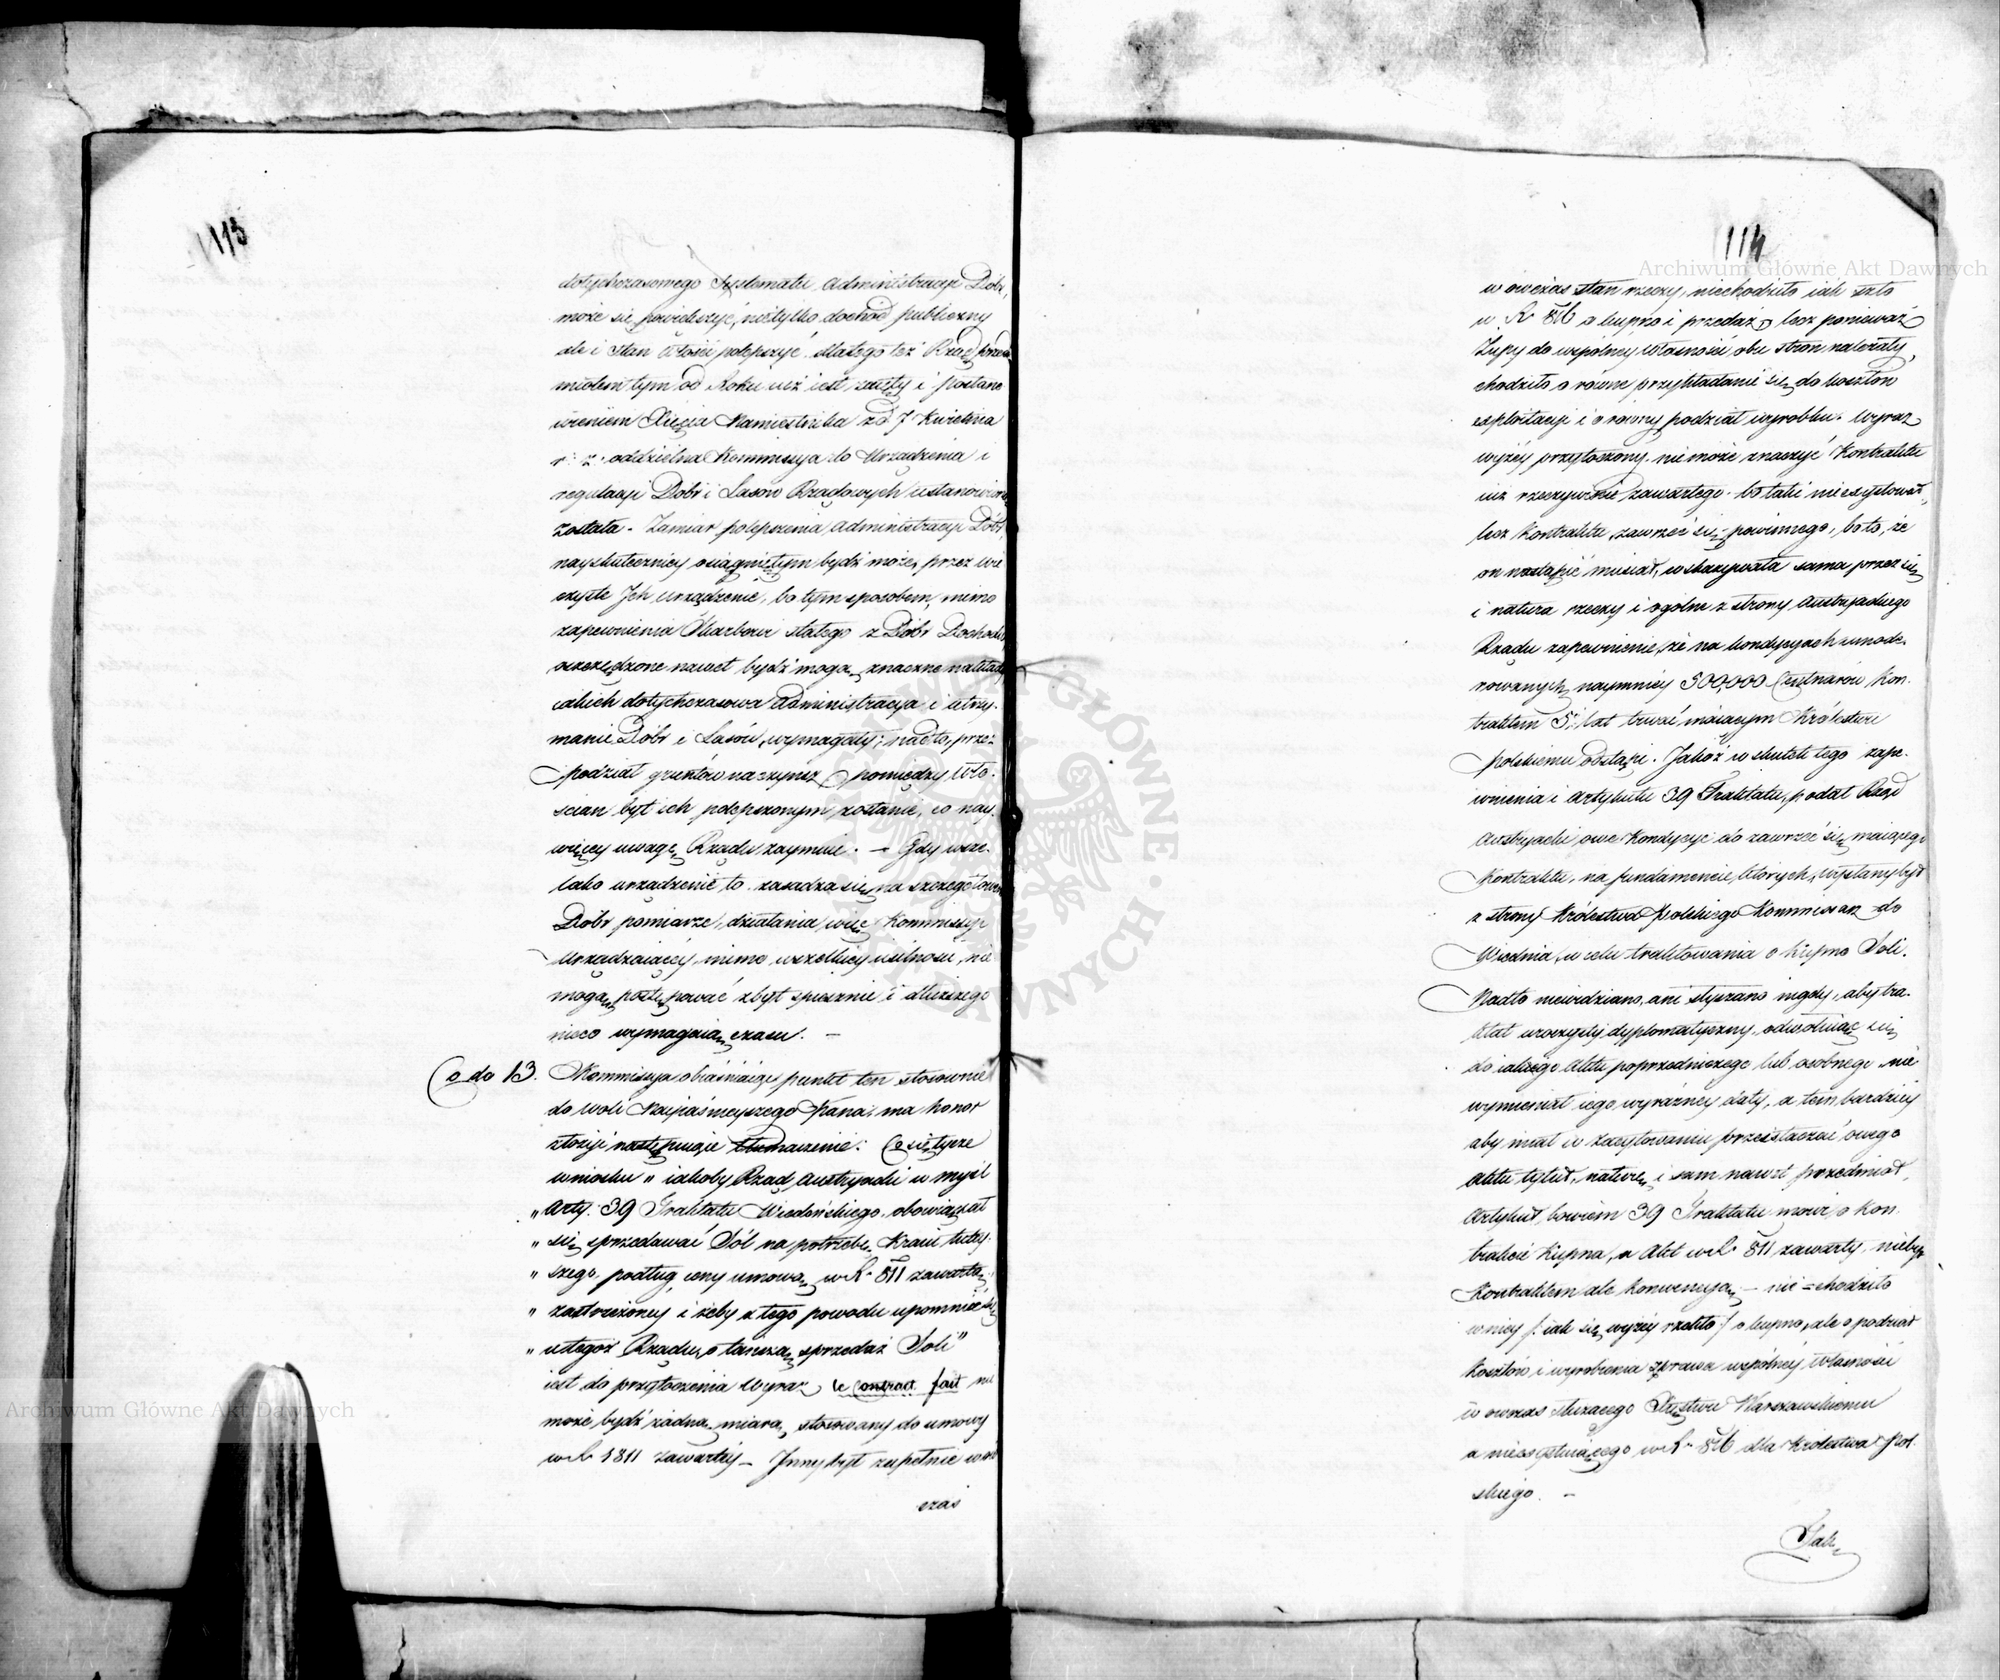 113
dotychczasowego Systematu Administracyi Dóbr,
może się powiększyć, nietylko dochod publiczny
ale i stan Włości polepszyć, dlatego też Rząd przed
miotem tym od Roku iuż iest zaięty i postano
wieniem Xięcia Namiestnika z d. 7 Kwietnia
r: z: oddzielna Kommissya do Urządzenia i
regulacyi Dóbr i Lasów Rządowych ustanowiona
została. Zamiar polepszenia Administracyi Dóbr,
nayskuteczniey osiągniętym bydź może, przez wie
czyste Ich urządzenie, bo tym sposobem, mimo
zapewnienia Skarbowi stałego z Dóbr Dochodu
oszczędzone nawet bydź mogą znaczne nakłady
iakich dotychczasowa Administracya i utrzy-
manie Dóbr i Lasów, wymagały; nadto, przez
podział gruntów na czynsz, pomiędzy Wło-
scian byt ich polepszonym zostanie, co nay-
więcey uwagę Rządu zaymuie. – Gdy wsze-
lako urządzenie to zasadza się na szczegółowem
Dóbr pomiarze, działania więc Kommissyi
Urządzaiącey, mimo wszelkiey usilności, nie
mogą postępować zbyt spiesznie i dłuższego
nieco wymagaią czasu. –
Co do 13. Kommissya obiaśniaiąc punkt ten stosownie
do woli Nayiaśnieyszego Pana, ma honor
złożyć następuiące tłumaczenie: Co się tycze
wniosku „ iakoby Rząd Austryacki w myśl
„ Arty: 39 Traktatu Wiedeńskiego, obowiązał
„ się sprzedawać Sól na potrzebę Kraiu tutey-
„ szego, podług ceny umową w R. 811 zawartą,
„ zastrzeżoney i żeby z tego powodu upomnieć się
„ u tegoż Rządu, o tańszą sprzedaż Soli"
iest do przytoczenia Wyraz, le Contract fait nie
może bydź żadną miarą, stosowany do umowy
w R. 1811 zawartéy – Inny był zupełnie wow
czas
114
w owczas stan rzeczy, niechodziło iak szło
w R. 816 o kupno i przedaż, lecz ponieważ
Żupy do wspólney Własności obu stron należały,
chodziło o równe przykładanie się do kosztów
exploitacyi i o rowny podział wyrobku. Wyraz
wyżey przytoczony nie może znaczyć Kontraktu
iuż rzeczywiście zawartego, bo taki nieexystował,
lecz Kontraktu, zawrzeć się powinnego, bo to, że
on nastąpić musiał, wskazywała sama przez się
i natura rzeczy i ogólne z strony Austryackiego
Rządu zapewnienie, że na kondycyach umode-
rowanych, naymniey 500,000 Centnarów Kon-
traktem 5. lat trwać maiącym Królestwu
Polskiemu odstąpi. Jakoż w skutek tego zape-
wnienia i Artykułu 39 Traktatu, podał Rząd
Austryacki owe Kondycye do zawrzeć się maiącego
Kontraktu, na fundamencie, których, wysłany był
z strony Królestwa Polskiego Kommissarz do
Wiednia, w celu traktowania o kupno Soli.
Nadto niewidziano, ani słyszano nigdy, aby tra-
ktat uroczysty dyplomatyczny, odwołuiąc się
do iakiego Aktu poprzedniczego lub osobnego, nie
wymieniał iego wyraźney daty, a tem bardziey
aby miał w zacytowaniu przeistaczać owego
Aktu tytuł, naturę i sam nawet przedmiot,
Artykuł bowiem 39 Traktatu mówi o Kon-
trakcie Kupna, a Akt w R. 811 zawarty, niebył
Kontraktem ale Konwencyą – nie = chodziło
w niey /: iak się wyżey rzekło :/ o kupno, ale o podział
Kosztów i wyrobienia z prawa wspólney Własności
w owczas służącego Xięstwu Warszawskiemu
a nieexystuiącego w R. 816 dla Królestwa Pol-
skiego. –
Jak